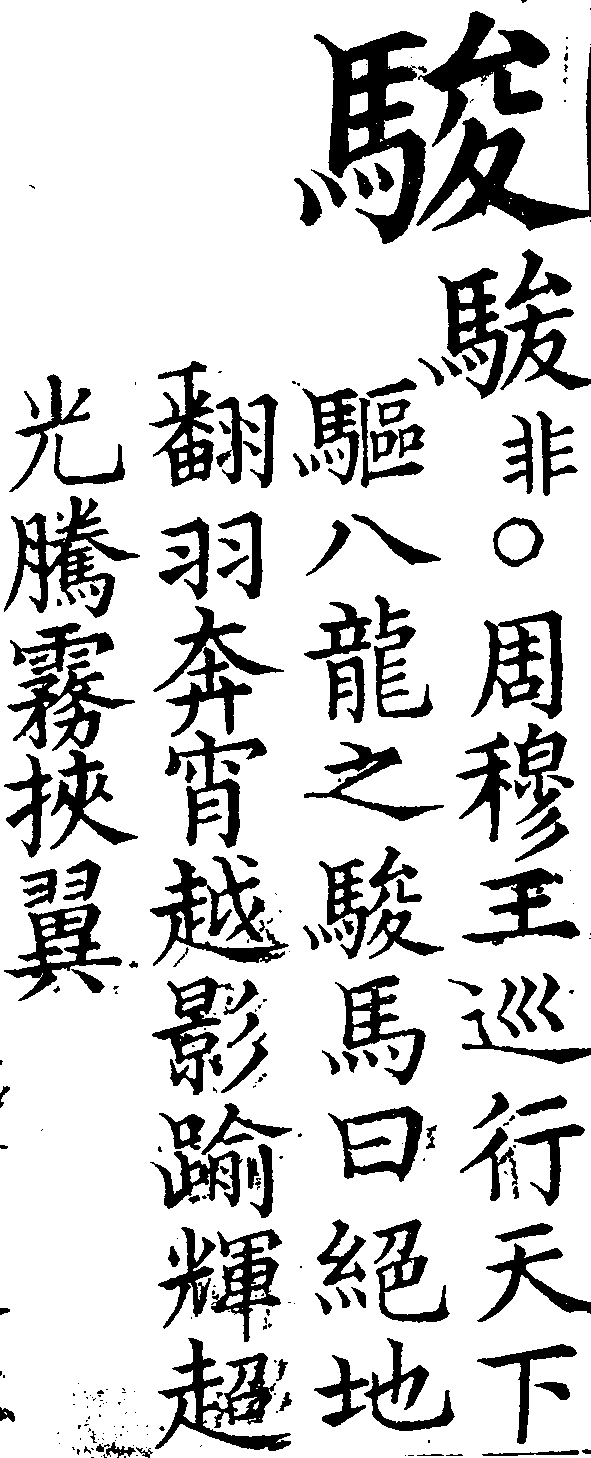 駿
非○周穆王巡行天下
驅八龍之駿馬曰絕地
翻羽奔宵越影踰輝超
光騰霧挾翼